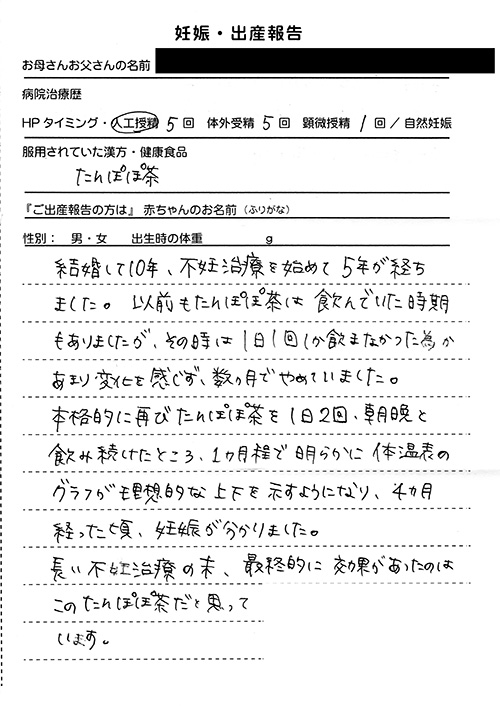 妊娠・出産報告
お母さんお父さんの名前
病院治療歴
HPタイミング・人工授精 5回 体外受精 5回 顕微授精 1回／自然妊娠
服用されていた漢方・健康食品
たんぽぽ茶
『ご出産報告の方は』赤ちゃんのお名前（ふりがな）
性別： 男・女 出生時の体重 g
結婚して10年、不妊治療を始めて5年が経ち
ました。以前もたんぽぽ茶は飲んでいた時期
もありましたが、その時は1日1回しか飲まなかった為か
あまり変化を感じず、数ヵ月でやめていました。
本格的に再びたんぽぽ茶を1日2回、朝晩と
飲み続けたところ、1ヵ月程で明らかに体温表の
グラフが理想的な上下を示すようになり、4ヵ月
経った頃、妊娠が分かりました。
長い不妊治療の末、最終的に効果があったのは
このたんぽぽ茶だと思って
います。